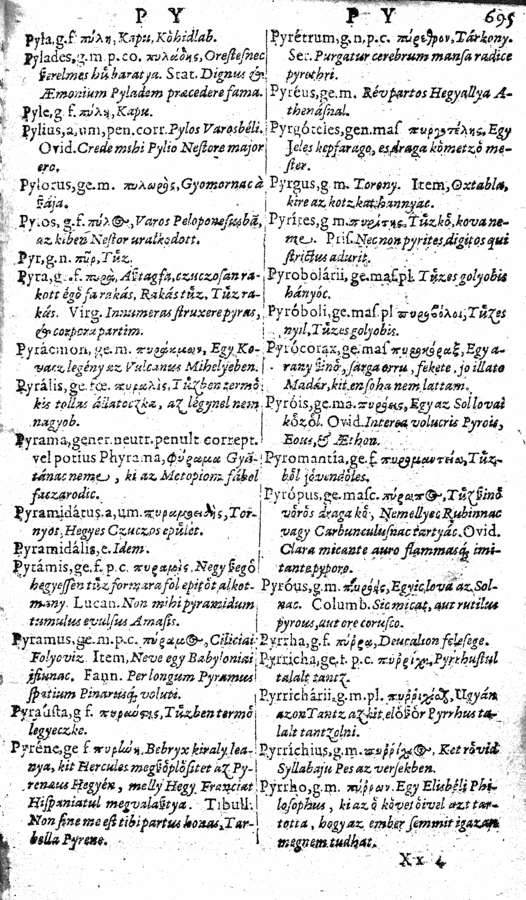 P Y
P Y 695
Pyla, g.f. πύλη, Kapu, Kòhidlab.
Pylades, g.m.p.co. πυλάδης, Orestesnec
ßerelmes hů baratya. Stat. Dignus &
Æmonium Pyladem præcedere fama.
Pyle, g.f. πύλη, Kapu.
Pylius, a, um, pen. corr. Pylos Varosbéli.
Ovid. Crede mshi Pylio Nestore major
ero.
Pylorus, ge.m. πυλωρὸς, Gyomornac à
ßája.
Pylos, g.f. πύλος, Varos Peloponesusbā,
az kiben Nestor uralkodott.
Pyr, g.n. πῦρ, Tůz.
Pyra, g.f. πυρὰ, czuczosan ra-
kott égő fa rakás, Rakás tůz, Tůz ra-
kás. Virg. Innumeras struxere pyras,
& corpora partim.
Pyrácmon, ge.m. πυράκμων, Egy Ko-
vacz legény az Vulcanus Mihelyében.
Pyrális, ge.fœ. πυραλὶς, Tůzben termő
kis tollas állatoczka, az légynel nem
nagyob.
Pyrama, gener. neutr. penult. corrept.
vel potius Phyrama, φύραμα Gyā-
tánac neme, ki az Metopion fábol
faczarodic.
Pyramidátus, a, um, Tor-
nyos, Hegyes Czuczos epület.
Pyramidális, e. Idem.
Pyrámis, ge.f.p.c. πυραμὶς, Negy ßegő
hegyessen tůz formara fol epitőt alkot-
many. Lucan. Non mihi pyramidum
tumulus evulsus Amasis.
Pyramus, ge.m.p.c. πύραμος, Ciliciai
Folyoviz. Item, Neve egy Babyloniai
ifiunac. Per longum Pyramus
spatium Pinarusq; voluti.
Pyraústa, g f. πυραύςης, Tůzben termő
legyeczke.
Pyréne, ge f. πυρήνη, Bebryx kiraly lea-
nya, kit Hercules megßőplősitet az Py-
renæus Hegyén, melly Hegy Franciat
Hispaniatul megvalaßtya. Tibull:
Non sine me est tibi partus honos, Tar-
bella Pyrene.
Pyrétrum, g.n, p.c. πύρεθρον, Tárkony.
Ser. Purgatur cerebrum mansa radice
pyrethri.
Pyréus, ge.m. Rév partos Hegyallya A-
thenásnal.
Pyrgóteles, gen. mas πυργοτέλης, Egy
Jeles kepfarago, es draga kőmetző me-
ster.
Pyrgus, g m. Torony. Item, Ostabla,
kire az kotzkat hannyac.
Pyrites, g m. πυρίτης, Tůz kő, kova ne-
me. Pris. Nec non pyrites, digitos qui
strictus adurit.
Pyrobolárii, ge.mas.pl. Tůzes golyobis
hányóc.
Pyróboli, ge.mas.pl πυροβόλοι, Tůzes
nyil, Tůzes golyobis.
Pyrócorax, ge.mas πυροκόραξ, Egy a-
rany ßinő, sárga orru, fekete, jo illato
Madár, kit en soha nem lattam.
Pyróis, ge.ma. πυρόεις, Egy az Sol lovai
kőzől. Ovid. Interea volucris Pyrois,
Eous, & Æthon.
Pyromantia, ge.f. πυρομαντεία, Tůz-
ből jővendőles.
Pyrópus, ge.masc. πύρωπος, Tůz ßinő
vőrős draga kő, Nemellyec Rubinnac
vagy Carbunculusnac tartyác. Ovid.
Clara micante auro flammasq; imi-
tante pyropo.
Pyróus, g.m. Egyic lova az Sol-
nac. Columb. Sic micat, aut rutilus
pyrous, aut ore corusco.
Pyrrha, g.f. πύῤῥα, Deucalion felesege.
Pyrricha, ge.f. p.c. πυῤῥίχη, Pyrrhustul
talalt tantz.
Pyrrichárii, g.m.pl. Ugyán
azon Tantz az kit előßőr Pyrrhus ta-
lalt tantzolni.
Pyrríchius, g.m. Ket rővid
Syllabaju Pes az versekben.
Pyrrho, g.m. πύῤῥων. Egy Elisbéli Phi-
losophus, ki az ő kővetőivel azt tar-
totta, hogy az ember semmit igazan
meg nem tudhat.
Xx 4